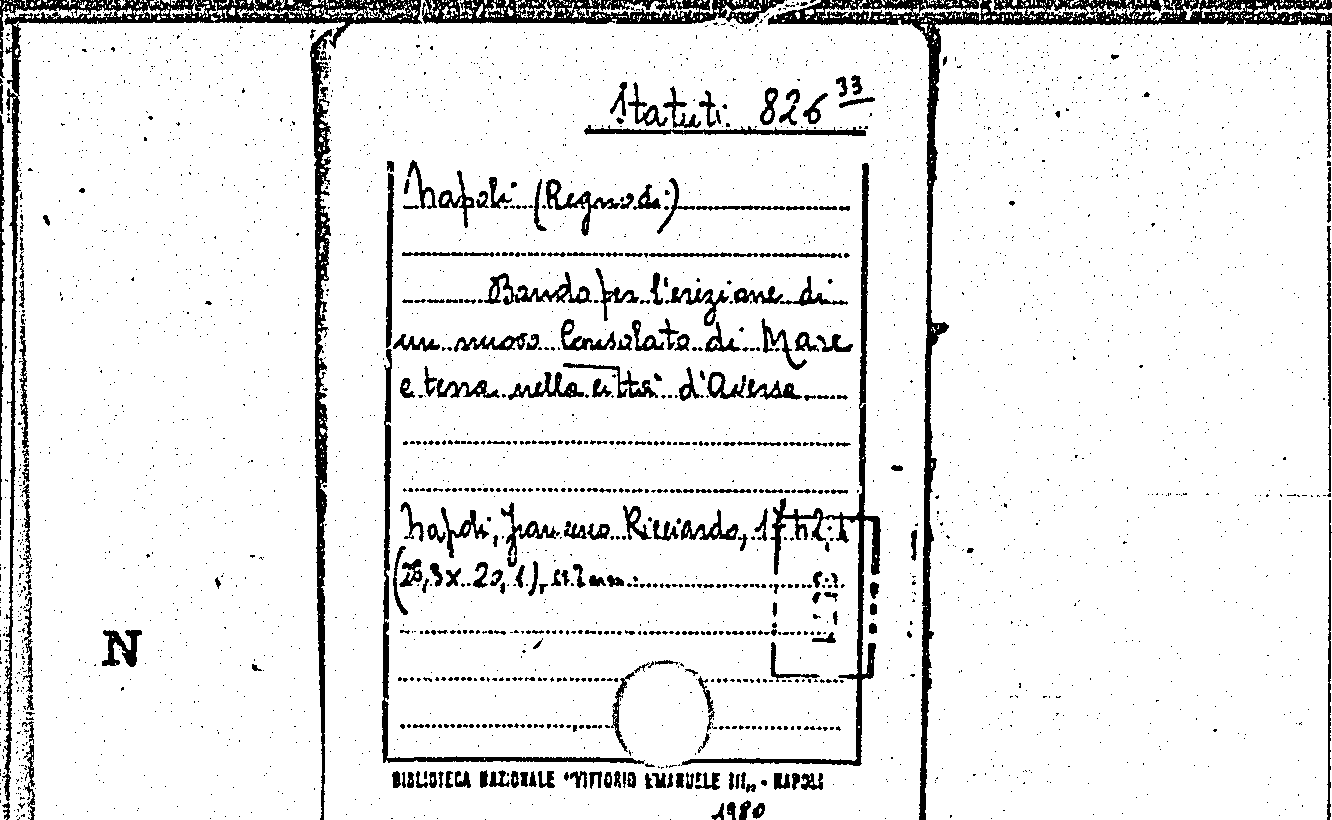 Statuti 826 33
Napoli (Regno di)
Bando per l'erezione di
un nuovo Consolato di Mare
e terra nella città d'Aversa
Napoli, Francesco Ricciardo, 1742,
(28,3 x 20,1),
N
BIBLIOTECA NAZIONALE "VITTORIO EMANUELE III" - NAPOLI
1980